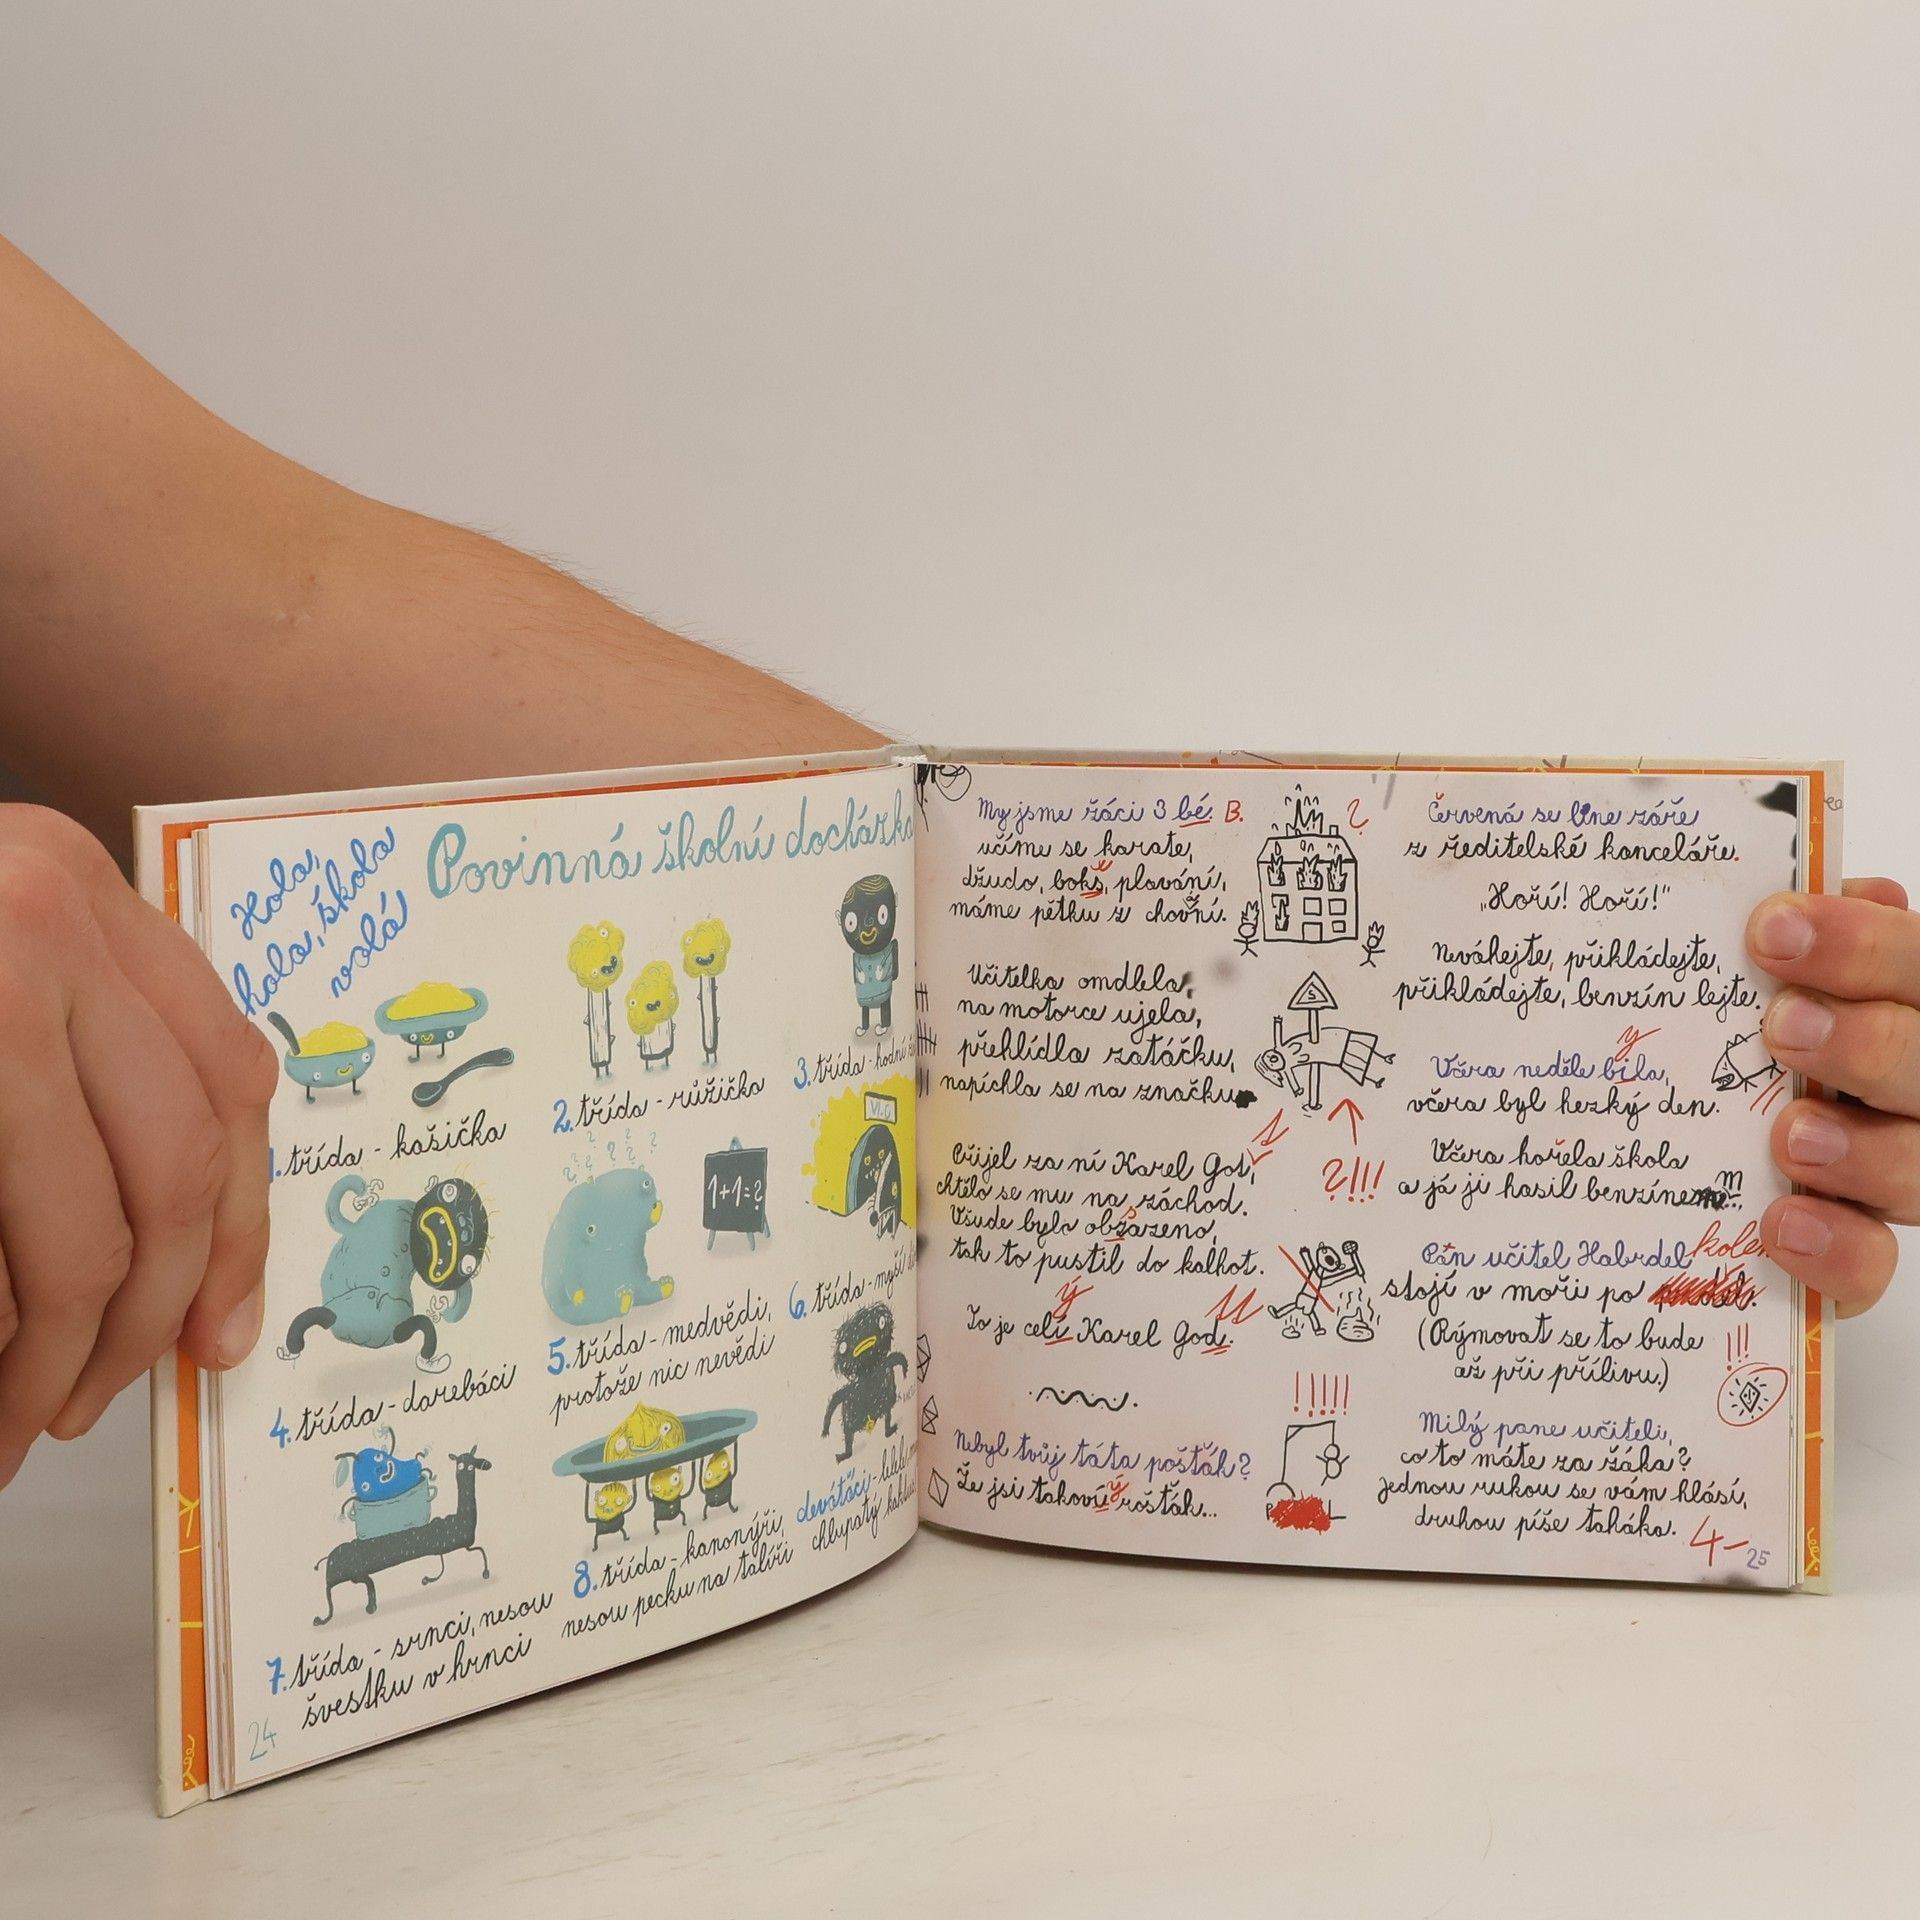 Hola,
hola, škola
volá
Povinná školní docházka
1. třída - kašička
2. třída - růžička
3. třída - hodní
4. třída - darebáci
1+1=?
5. třída - medvědi,
protože nic nevědi
6. třída - myší
7. třída - srnci, nesou
švestku v hrnci
8. třída - kanonýři,
nesou pecku na talíři
deváťáci -
chlupatý
24
My jsme žáci 3 bé. B.
učíme se karate,
džudo, boks, plování,
máme pětku z chovní.
Učitelka omdlela,
na motorce ujela,
přehlídla zatáčku,
napíchla se na značku
Přijel za ní Karel Got,
chtělo se mu na záchod.
Všude bylo obzazeno,
tak to pustil do kalhot.
ý
To je celí Karel God.
Nebyl tvůj táta pošťák?
Že jsi takovíí rošťák...
ý
?
?!!!
!!!!!
Červená se line záře
z ředitelské kanceláře.
„Hoří! Hoří!"
Neváhejte, přikládejte,
přikládejte, benzín lejte.
y
Včera neděle bila,
včera byl hezký den.
Včera hořela škola
a já ji hasil benzínem
Pán učitel Habrdel
stojí v moři po
(Rýmovat se to bude
až při přílivu.)
!!!
Milý pane učiteli,
co to máte za žáka?
Jednou rukou se vám hlásí,
druhou píše taháka.
4-
25